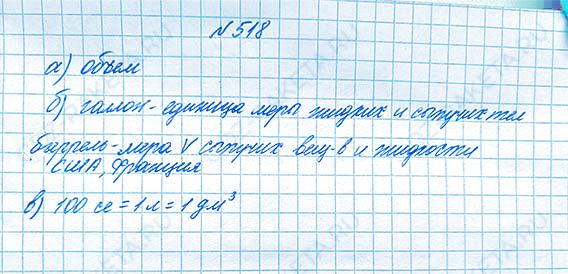 №518
а) объем
б) галлон - единица меры жидких и сыпучих тел
баррель - мера V сыпучих вещ-в и жидкости
США, Франция
в) 100 се = 1 л = 1 дм³